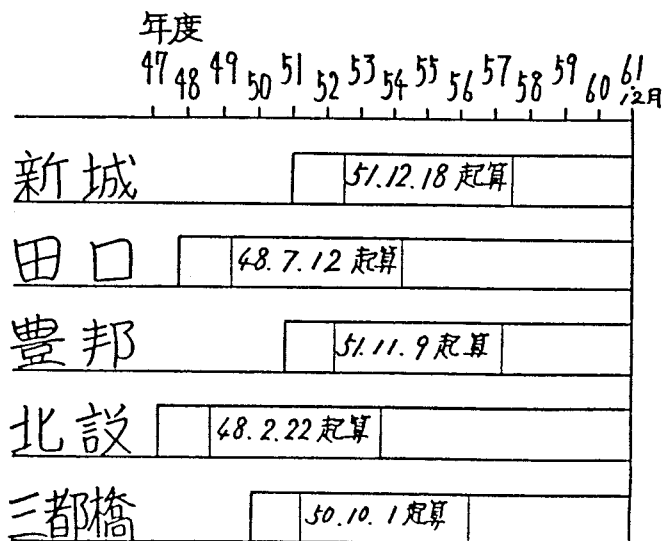 年度
47 48 49 50 51 52 53 54 55 56 57 58 59 60 61
12月
新城 51.12.18 起算
田口 48.7.12 起算
豊邦 51.11.9 起算
北設 48.2.22 起算
三都橋 50.10.1 起算